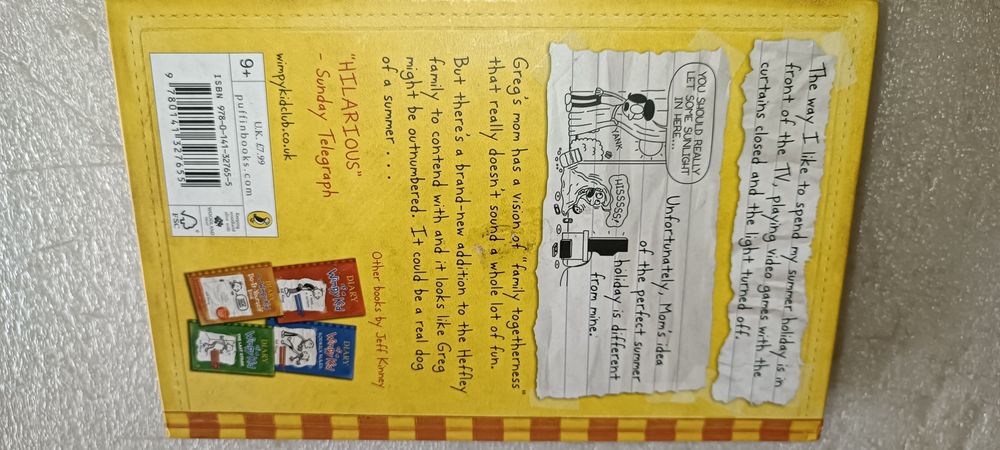 The way I like to spend my summer holiday is in
front of the TV, playing video games with the
curtains closed and the light turned off.
YOU SHOULD REALLY
LET SOME SUNLIGHT
IN HERE...
YANK
HISSSSS!
Unfortunately, Mom's idea
of the perfect summer
holiday is different
from mine.
Greg's mom has a vision of "family togetherness"
that really doesn't sound a whole lot of fun.
But there's a brand-new addition to the Heffley
family to contend with and it looks like Greg
might be outnumbered. It could be a real dog
of a summer . . .
"HILARIOUS"
- Sunday Telegraph
wimpykidclub.co.uk
Other books by Jeff Kinney
DIARY
of a
Wimpy Kid
DIARY
of a
Wimpy Kid
RODRICK RULES
DIARY
of a
Wimpy Kid
DIARY
of a
Wimpy Kid
9+
U.K. £7.99
puffinbooks.com
ISBN 978-0-141-32765-5
9 780141 327655
FSC